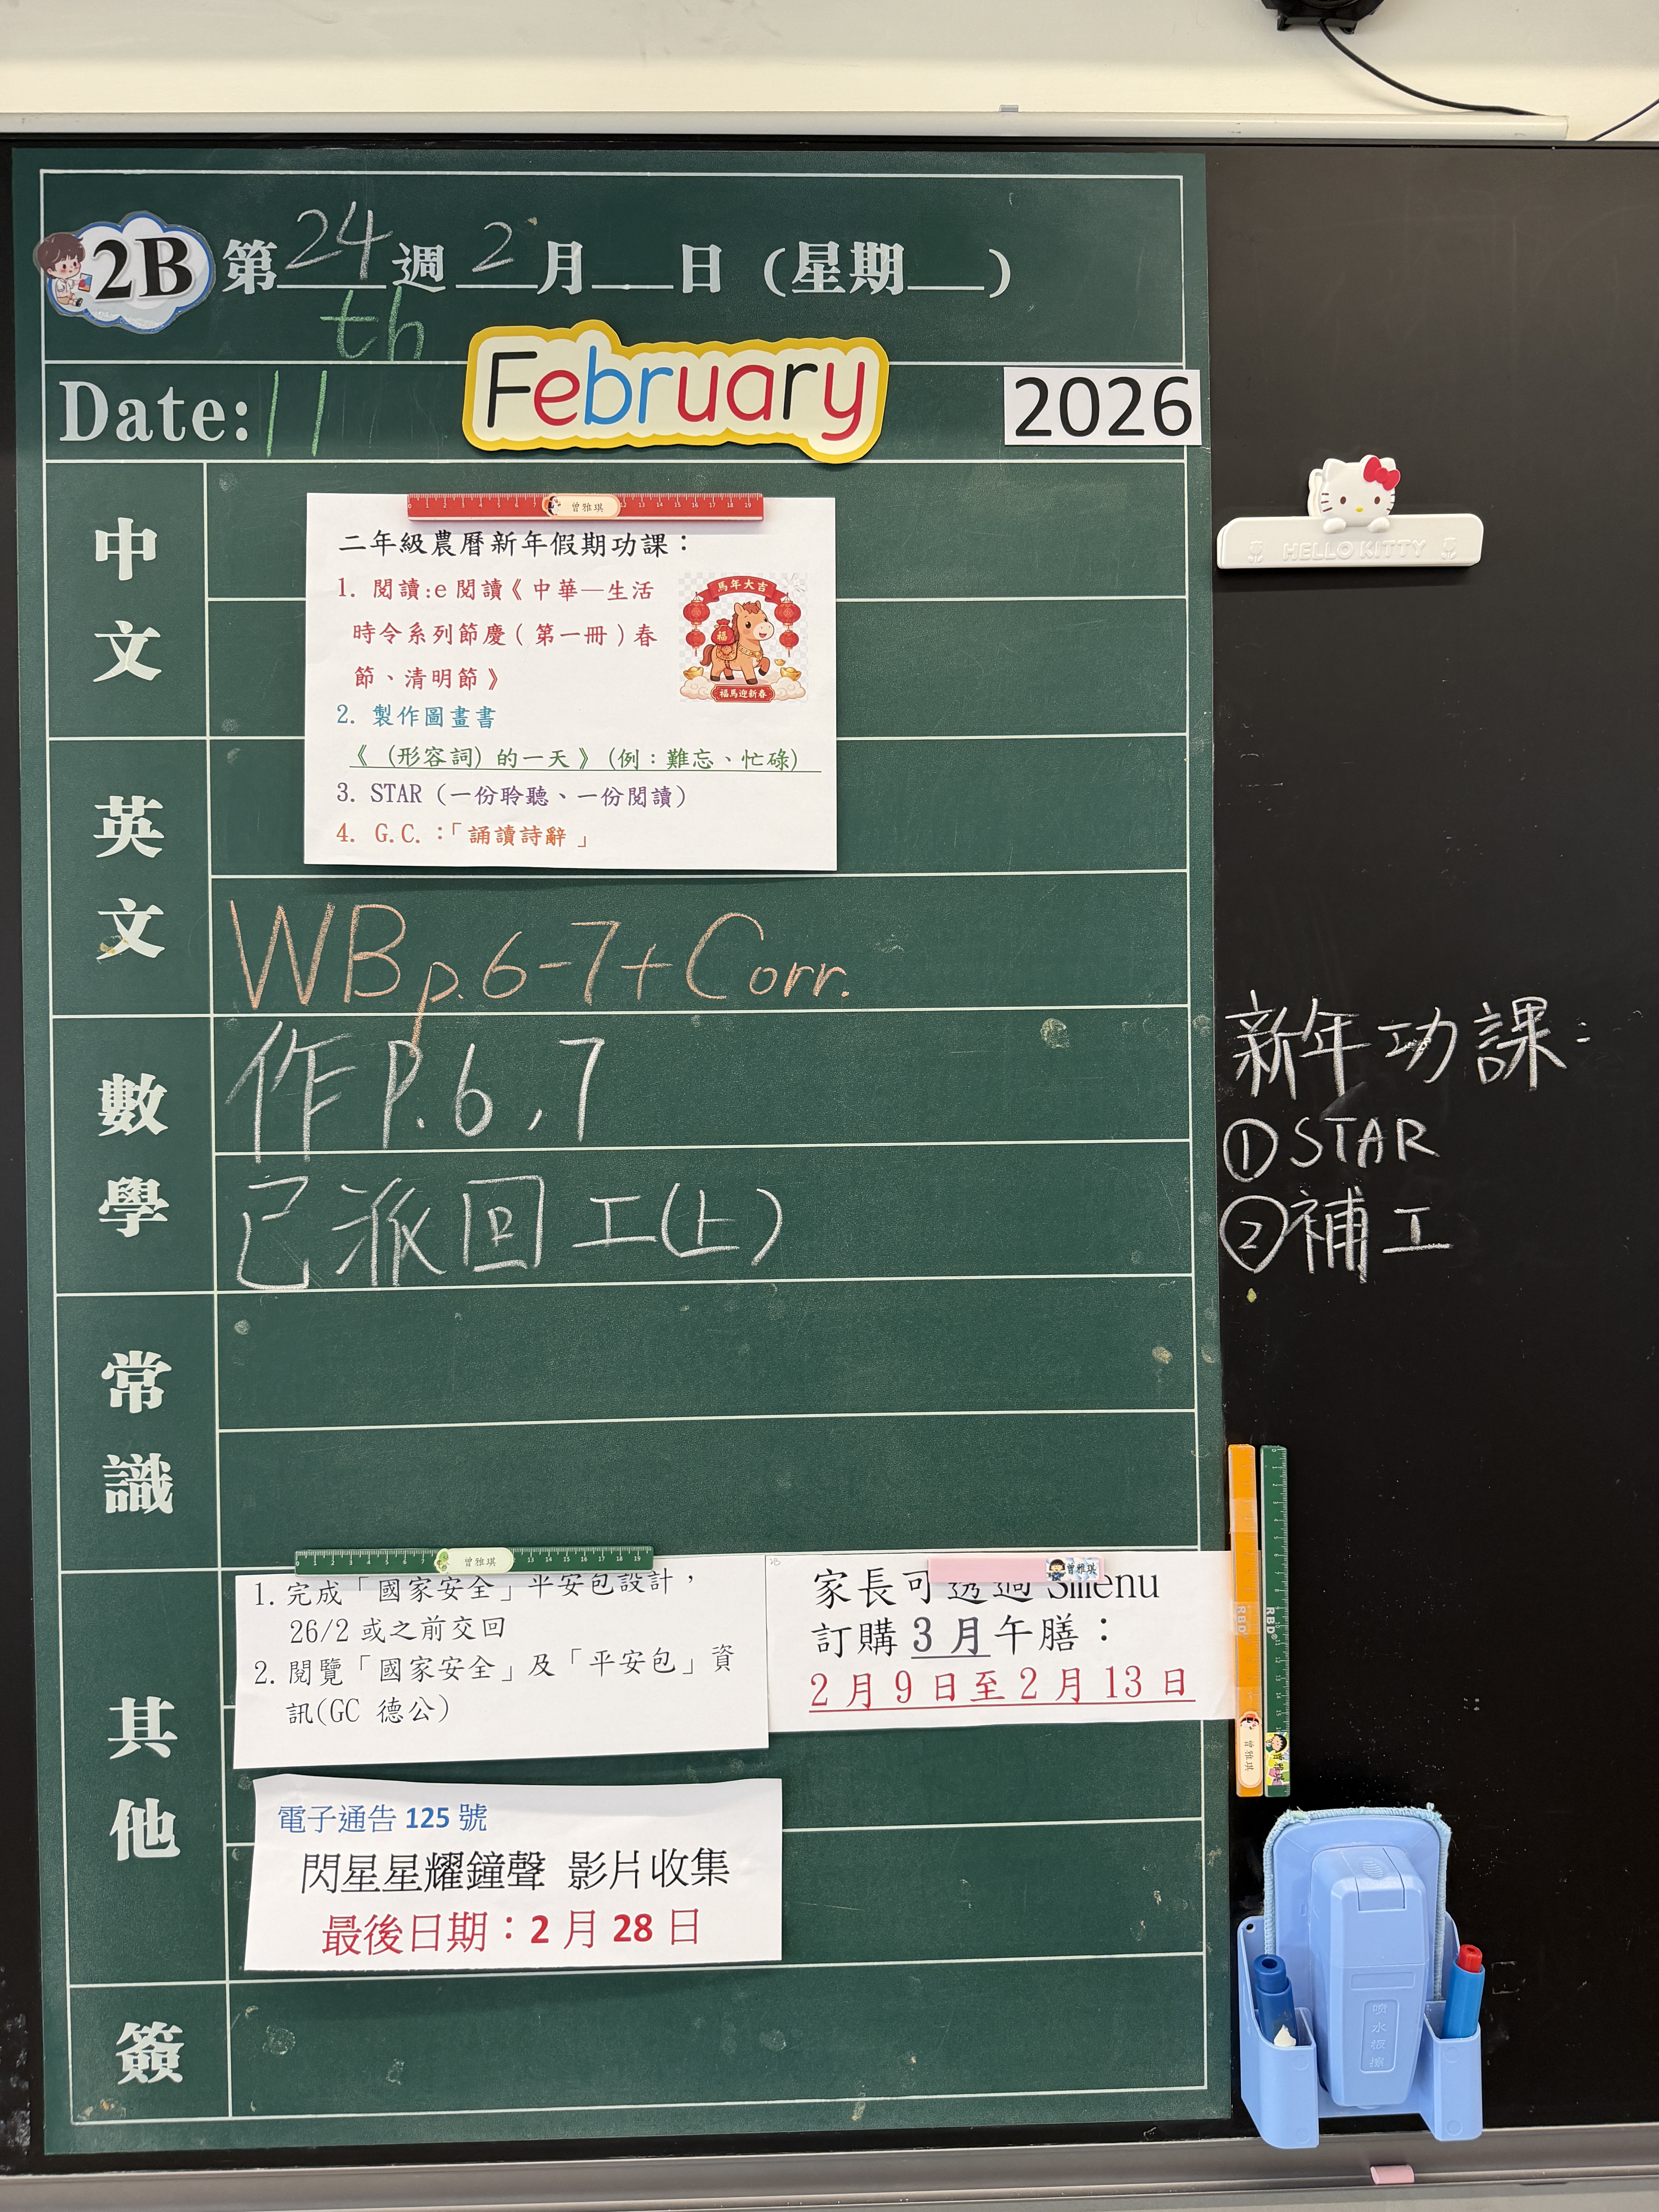 2B 第24週 2月__日 (星期__)
th
Date: 11 February 2026
中文
二年級農曆新年假期功課：
1. 閱讀:e 閱讀《中華—生活
時令系列節慶(第一冊)春
節、清明節》
2. 製作圖畫書
《 (形容詞) 的一天》(例：難忘、忙碌)
3. STAR (一份聆聽、一份閱讀)
4. G.C.：「誦讀詩辭」
馬年大吉
福
福馬迎新春
曾雅琪
英文
WB p.6-7+Corr.
數學
作 P.6,7
已派回 工(上)
常識
其他
曾雅琪
1. 完成「國家安全」平安包設計，
26/2 或之前交回
2. 閱覽「國家安全」及「平安包」資
訊(GC 德公)
曾雅琪
家長可透過
訂購 3 月午膳：
2 月 9 日至 2 月 13 日
電子通告 125 號
閃星星耀鐘聲 影片收集
最後日期：2 月 28 日
簽
HELLO KITTY
新年功課:
①STAR
②補工
RBD
RBD
曾雅琪
曾雅琪
噴水板擦